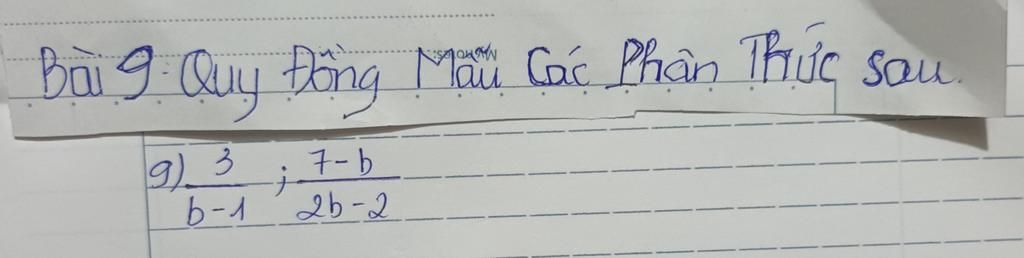 Bài 9. Quy Đồng Mẫu Các Phân Thức sau.
g) 3/b-1 ; 7-b/2b-2